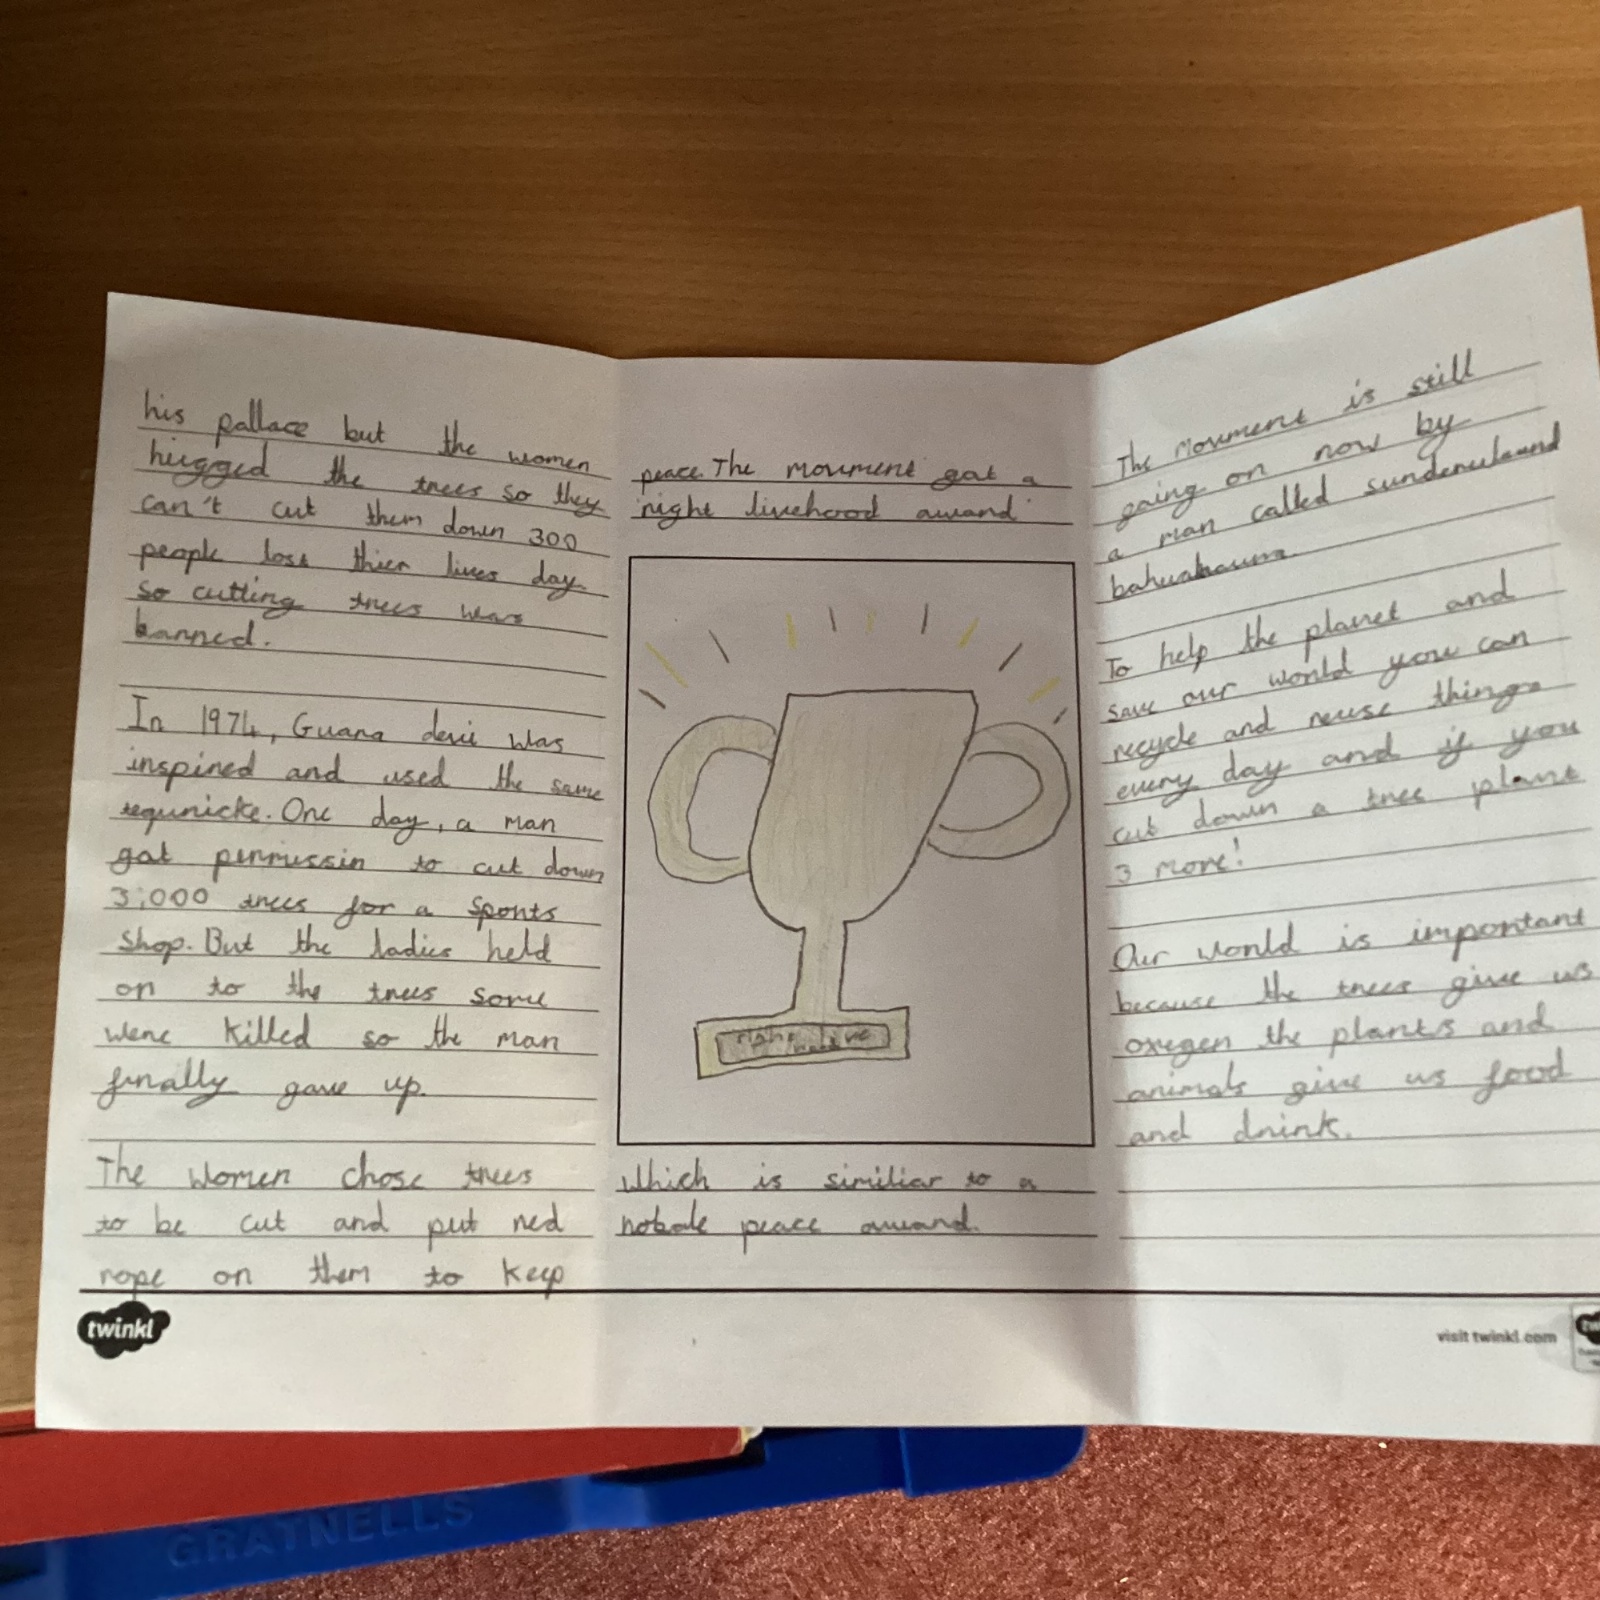 his pallace but the women
hugged the trees so they
can't cut them down 300
people loss thier lives day.
so cutting trees was
banned.
In 1974, Guara devi was
inspired and used the same
tequnicke. One day, a man
got perrussin to cut down
3,000 trees for a sports
shop. But the ladies held
on to the trees some
were killed so the man
finally gave up.
The women chose trees
to be cut and put red
rope on them to keep
peace. The movment got a
'right livehood award'
right live
which is similiar to a
nobale peace award.
The movment is still
going on now by
a man called sundereulaund
bahuahauna.
To help the planet and
save our world you can
recycle and reuse things
every day and if you
cut down a tree plant
3 more!
Our world is important
because the trees give us
oxegen the plants and
animals give us food
and drink.
twinkl
visit twinkl.com
GRATNELLS